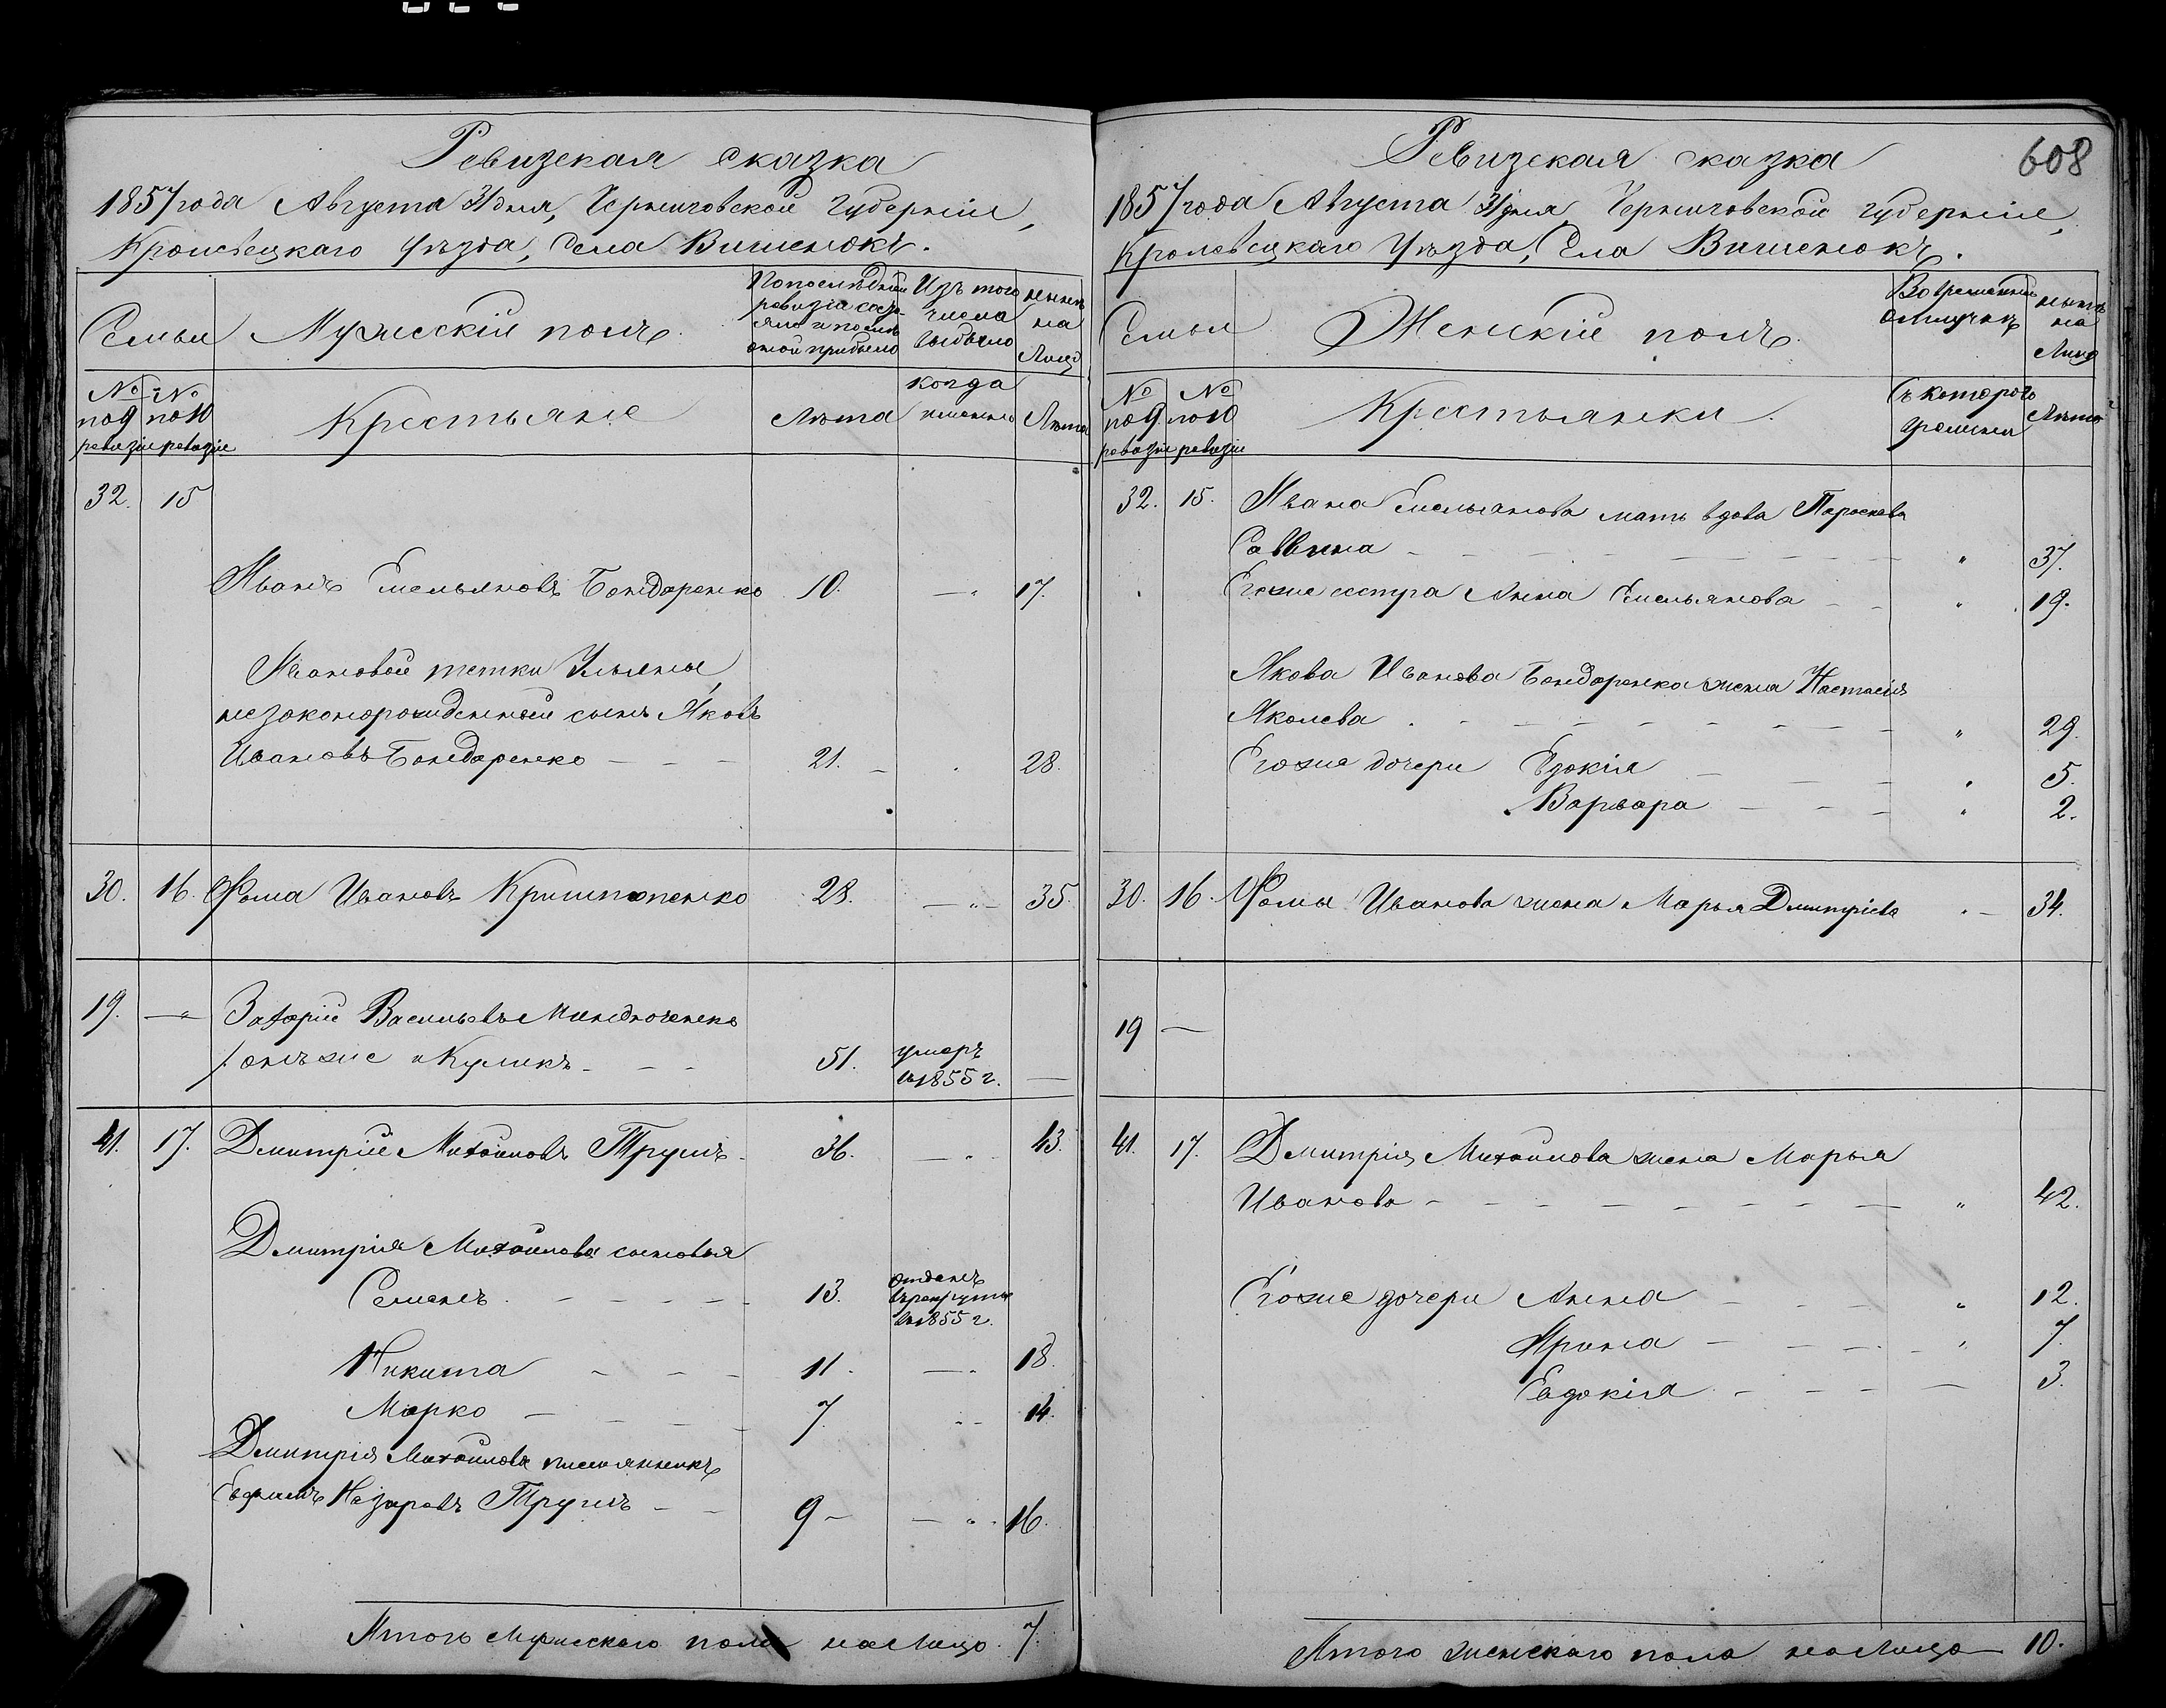 Ревизская сказка
1857 года Августа 31 дня, Черниговской губерніи,
Кролевецкаго уѣзда, Села Вишенокъ.
Семьи
Мужескій полъ.
По послѣдней
ревизіи состо
яло и послѣ
оной прибыло
Изъ того
числа
выбыло
нынѣ
на
Лицо
№ №
по 9 по 10
ревизіи ревизіи
Крестьяне
Лѣта
когда
именно
Лѣта
32. 15
Иванъ Емельяновъ Бондаренко 10. — „ 17.
Ивановой тетки Ульяны,
незаконорожденный сынъ Яковъ
Ивановъ Бондаренко — — — 21. — . 28.
30. 16. Фома Ивановъ Кришпопенко 28. — „ — 35.
19. — „ Захарій Васильевъ
/: онъ же и Куликъ — — — 51. умеръ
въ 1855 г. —
41. 17. Дмитрій Михайловъ Трушъ. 36. — „ 43.
Дмитрія Михайлова сыновья
Семенъ — — — — 13. отданъ
въ рекруты
въ 1855 г.
Никита — — — — 11. — „ 18.
Марко — — — — 7. „ — 14.
Дмитрія Михайлова племянникъ
Ефимъ Назаровъ Трушъ — — 9 — — „ . 16.
Итого мужескаго пола на Лицо. 7.
608
Ревизская сказка
1857 года Августа 31 дня, Черниговской губерніи,
Кролевецкаго Уѣзда, Села Вишенокъ.
Семьи
Женскій полъ.
Во временной
отлучкѣ
нынѣ
на
Лицо
№ №
по 9. по 10
ревизіи ревизіи
Крестьянки.
Съ котораго
времени
Лѣта
32. 15. Ивана Емельянова мать вдова Параскева
Саввина — — — — — — „ 37.
Его же сестра Анна Емельянова — — „ 19.
Якова Иванова Бондаренка жена Настасія
Яколева . — — — — — — „ 29.
Его же дочери Евдокія — — — „ 5.
Варвара — — — „ 2.
30. 16. Фомы Иванова жена Марья Дмитріева „ — 34.
19 —
41. 17. Дмитрія Михайлова жена Марья
Иванова — — — — — — — — „ 42.
Его же дочери Анна — — — „ 12.
Ирина — — — — — „ 7.
Евдокія — — — — — 3.
Итого женскаго пола на Лицо — 10.